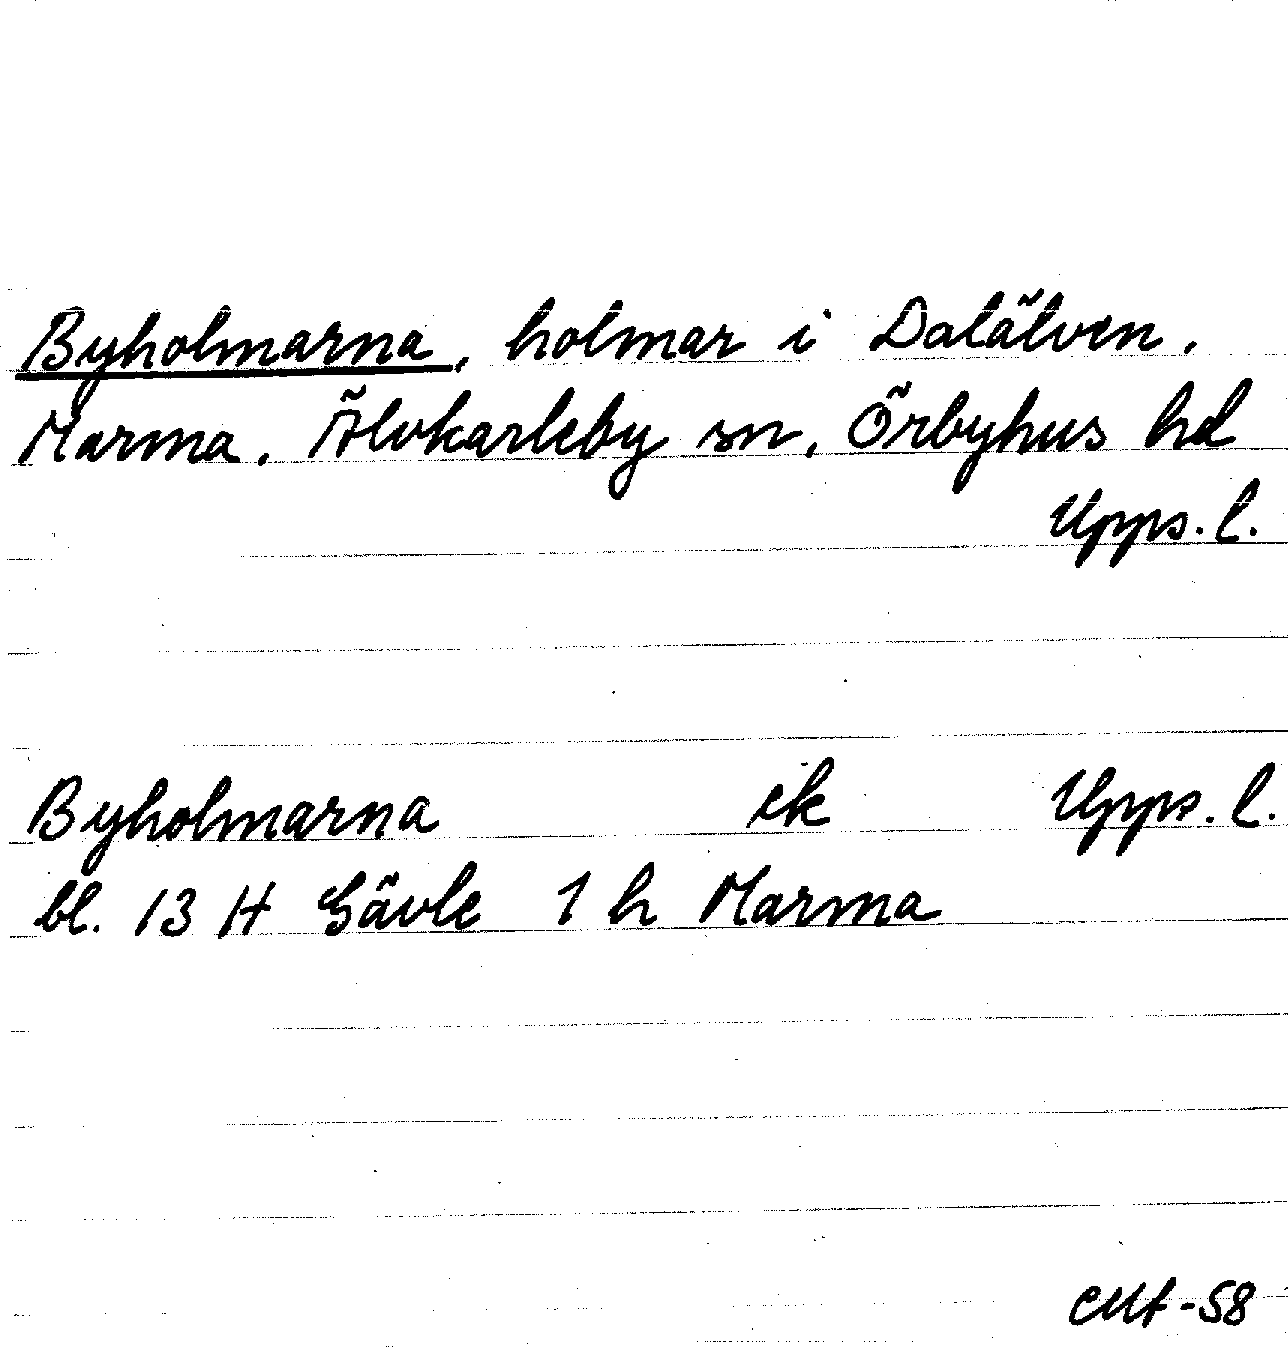 Byholmarna, holmar i Dalälven.
Marma. Älvkarleby sn, Örbyhus hd
Upps. l.
Byholmarna ek Upps. l.
bl. 13 H Gävle 1 h Marma
-58